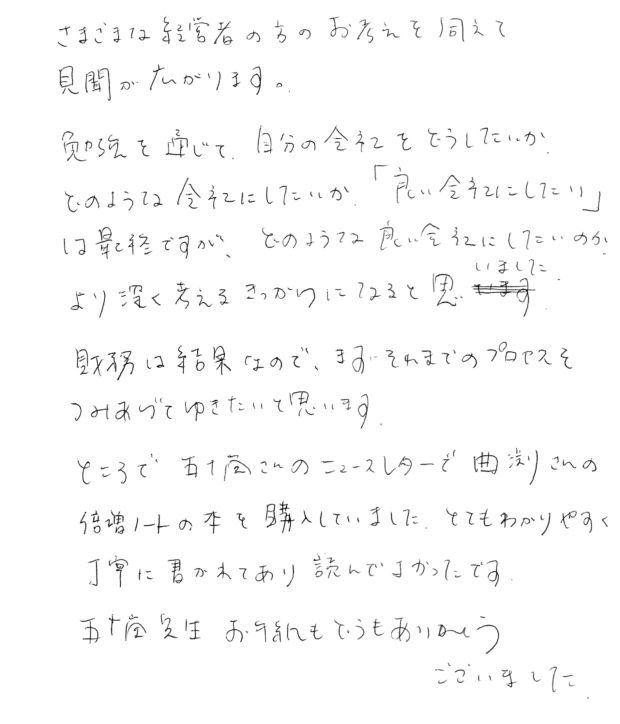 さまざまな経営者の方のお考えを伺えて
見聞が広がります。
勉強を通じて、自分の会社をどうしたいか
どのような会社にしたいか、「良い会社にしたい」
は最終ですが、どのような良い会社にしたいのか
いました
より深く考えるきっかけになると思います
財務は結果なので、まずそれまでのプロセスを
つみあげてゆきたいと思います
ところで 五十嵐さんのニュースレターで 曲渕さんの
倍増ノートの本を購入していました。とてもわかりやすく
丁寧に書かれてあり 読んでよかったです
五十嵐先生 お手紙もどうもありがとう
ございました